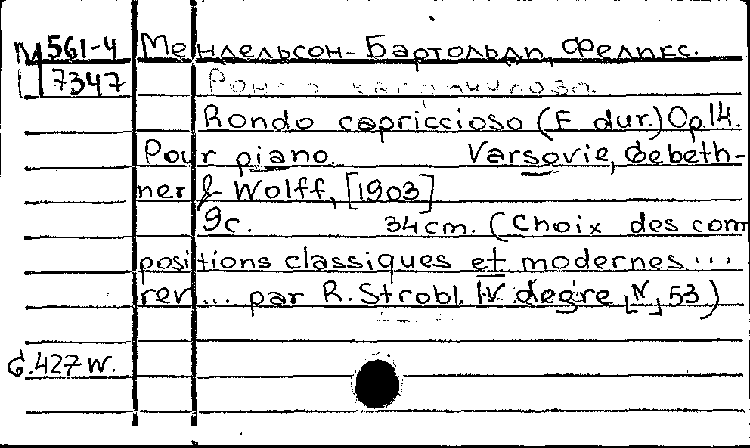 М 561-4 Мендельсон-Бартольди, Феликс.
7347
Rondo capriccioso (E dur.) Op 14.
Pour piano Varsovie, Gebeth-
ner & Wolff, [1903]
9с. 34cm. (Choix des com
positions classiques et modernes...
rev... par R. Strobl. IV degre, [N] 53)
G.427W.